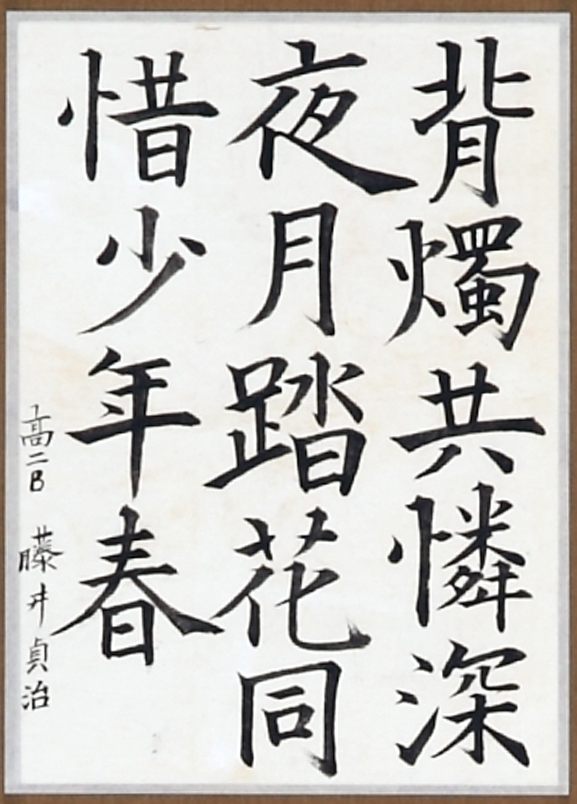 背燭共憐深
夜月踏花同
惜少年春
高二B 藤井貞治